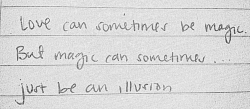 Love can sometimes be magic.
But magic can sometimes ...
just be an illusion